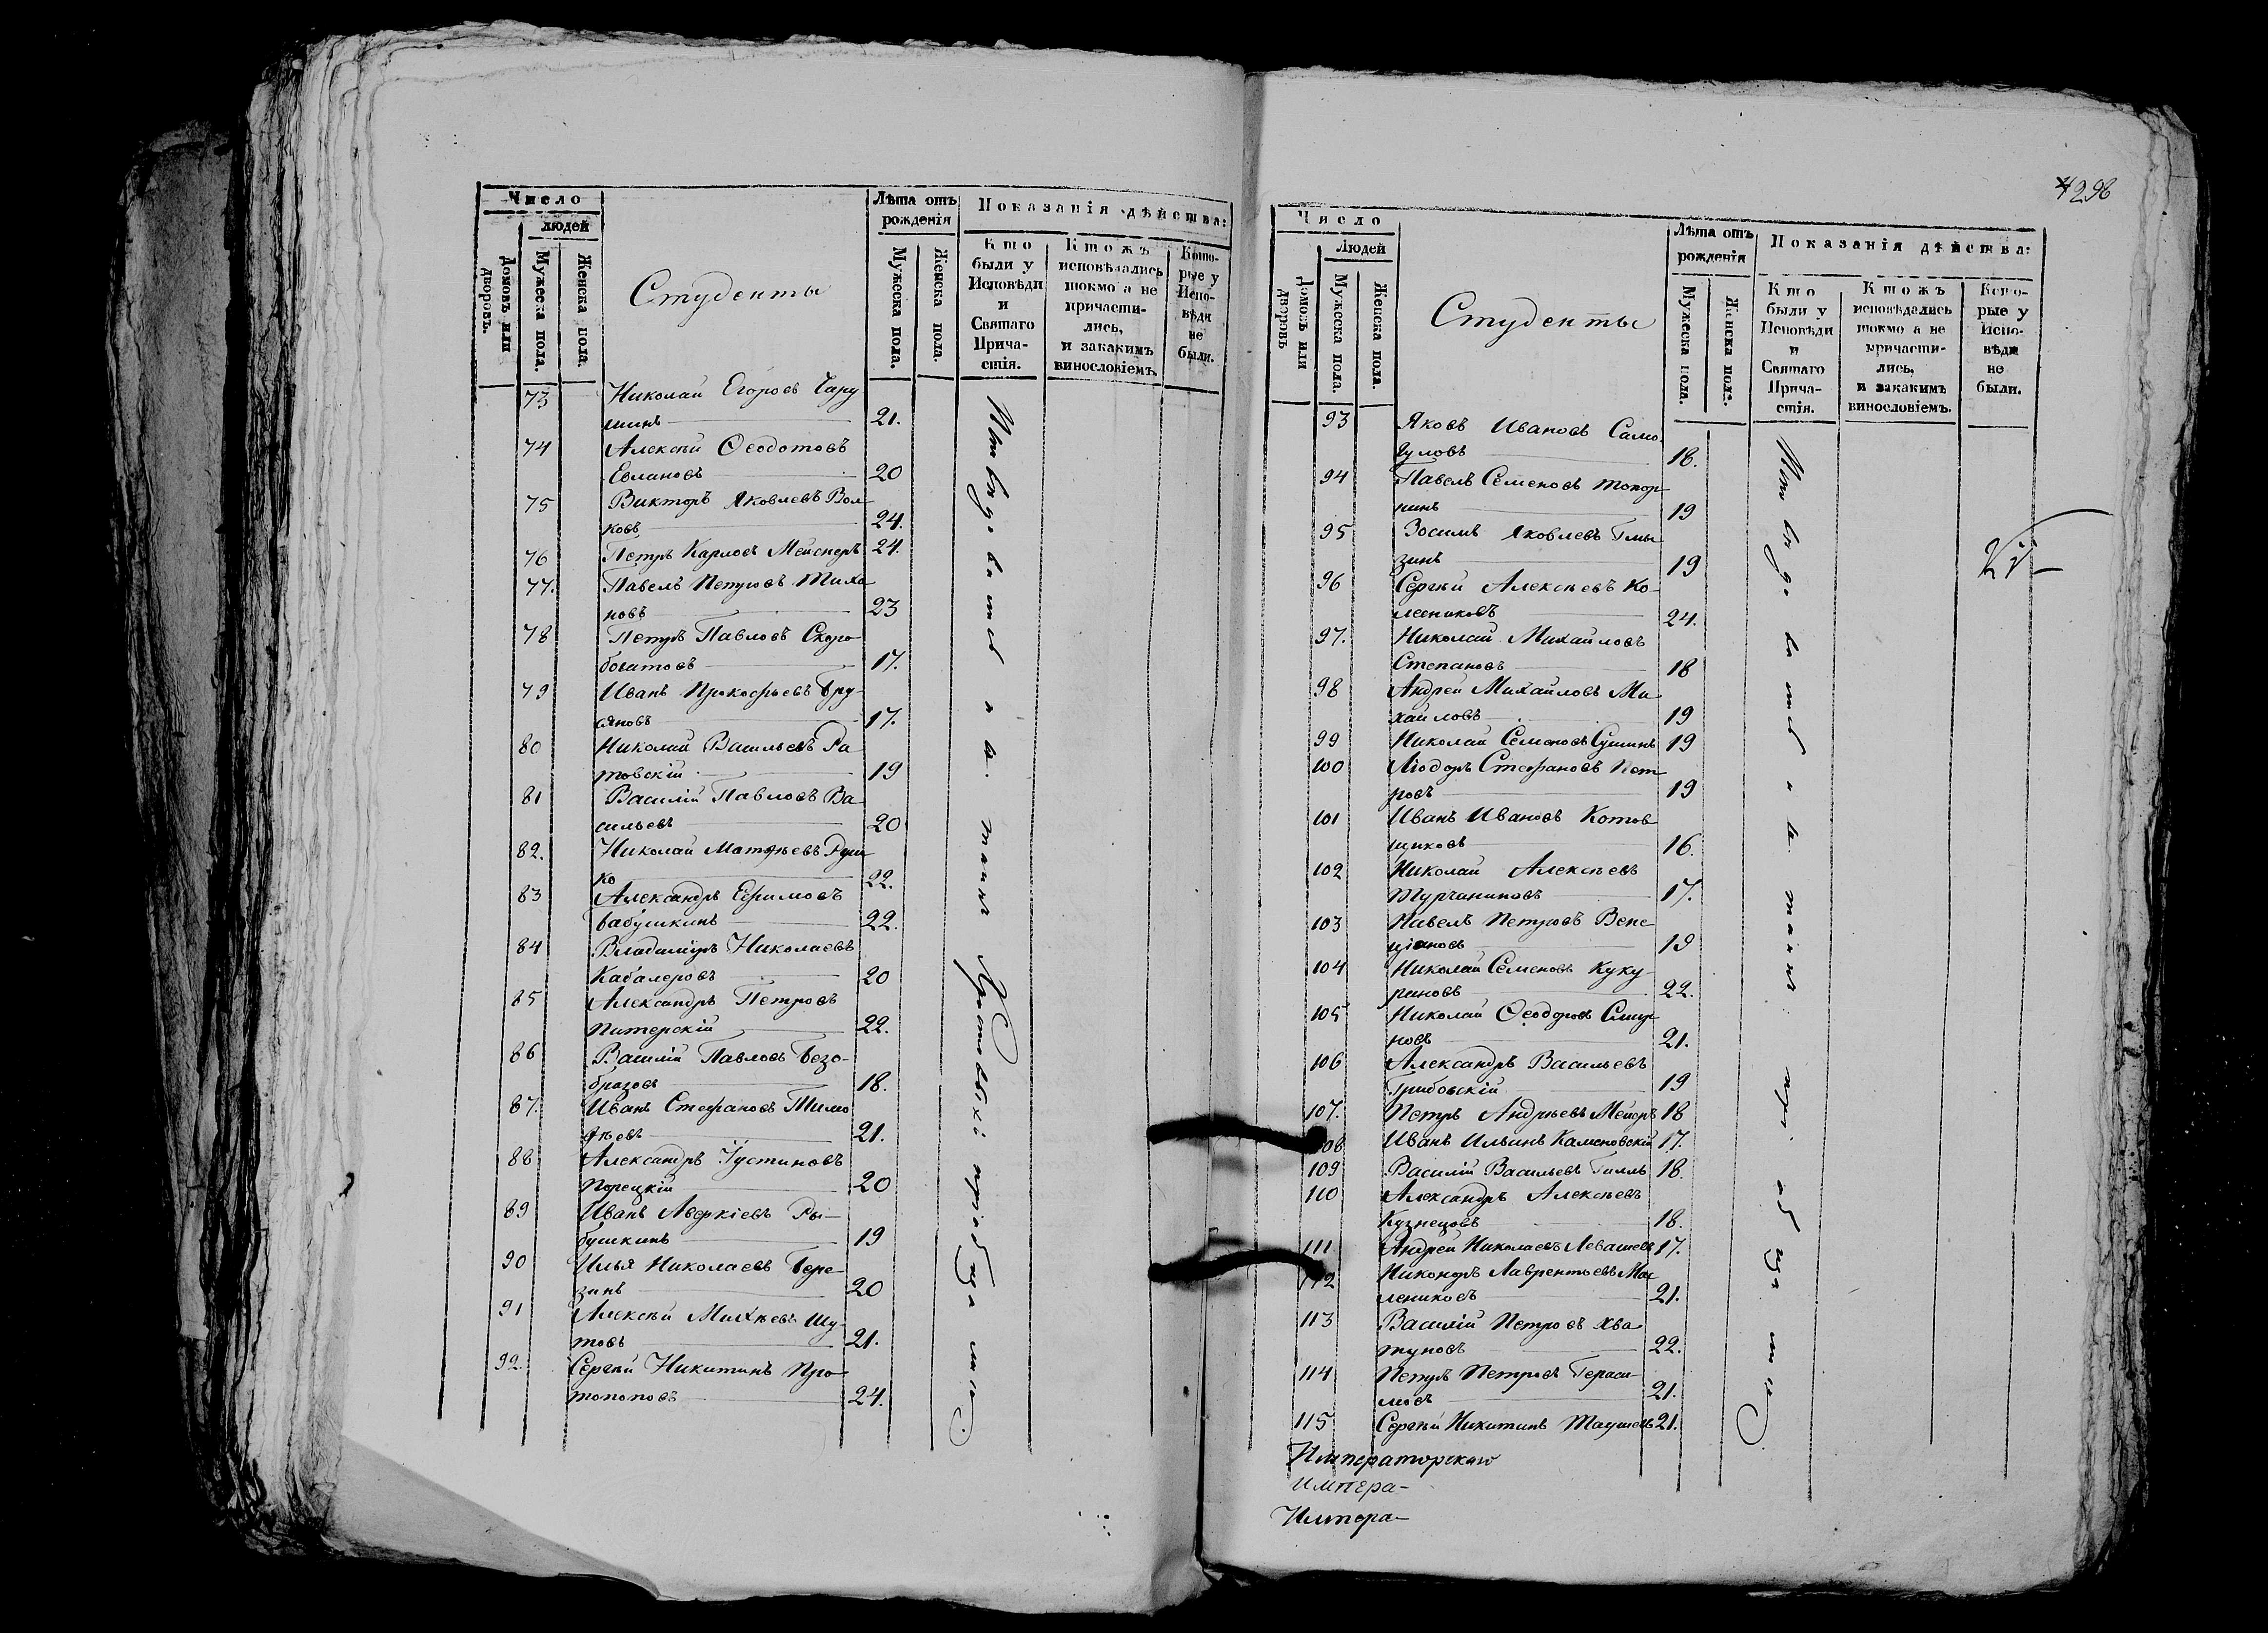 Число
людей
Домовъ или дворовъ.
Мужеска пола.
Женска пола.
Студенты
Лѣта отъ рожденія
Мужеска пола.
Женска пола.
Показанія дѣйства:
Кто были у Исповѣди и Святаго Прича-стія.
Ктожъ исповѣдались токмо а не причасти-лись, и закакимъ винословіемъ.
Кото-рые у Испо-вѣди не были.
73 Николай Егоровъ Чару
шинъ 21.
74 Алексѣй Ѳеодотовъ
Евлановъ 20
75 Викторъ Яковлевъ Вол
ковъ 24.
76 Петръ Карловъ Мейснеръ 24.
77. Павелъ Петровъ Тиха
новъ 23
78 Петръ Павловъ Скоро
богатовъ 17.
79 Иванъ Прокофьевъ Бру-
сяновъ 17.
80 Николай Васильевъ Ра
товскій 19
81 Василій Павловъ Ва
сильевъ 20
82. Николай Матѳѣевъ
ко 22.
83 Александръ Ефимовъ
Бабушкинъ 22.
84 Владиміръ Николаевъ
Кабалеровъ 20
85 Александръ Петровъ
Питерскій 22.
86 Василій Павловъ Безо-
бразовъ 18.
87. Иванъ Стефановъ Тимо
ѳѣевъ 21.
88 Александръ Іустиновъ
Порецкій 20
89 Иванъ Аверкіевъ Ры-
бушкинъ 19
90 Илья Николаевъ Бере-
зинъ 20
91 Алексѣй Михѣевъ Шу-
товъ 21.
92. Сергѣй Никитинъ Про
топоповъ 24.
4298
Число
Людей
Домовъ или дворовъ
Мужеска пола.
Женска пола.
Студенты
Лѣта отъ рожденія
Мужеска пола.
Женска пола.
Показанія дѣйства:
Кто были у Исповѣди и Святаго Прича-стія.
Ктожъ исповѣдались токмо а не причасти-лись, и закакимъ винословіемъ.
Кото-рые у Испо-вѣди не были.
93 Яковъ Ивановъ Само
гуловъ 18.
94 Павелъ Семеновъ Топор
нинъ 19
95 Зосимъ Яковлевъ Глы
зинъ 19
96 Сергѣй Алексѣевъ Ко-
лесниковъ 24.
97. Николай Михайловъ
Степановъ 18
98 Андрей Михайловъ Ми
хайловъ 19
99 Николай Семеновъ Сушинъ 19
100 Ліодоръ Стефановъ Пет
ровъ 19
101 Иванъ Ивановъ Котов
щиковъ 16.
102 Николай Алексѣевъ
Турчаниновъ 17.
103 Павелъ Петровъ Вене
ціановъ 19
104 Николай Семеновъ Куку-
рановъ 22.
105 Николай Ѳеодоровъ Смир
новъ 21.
106 Александръ Васильевъ
Грибовскій 19
107. Петръ Андрѣевъ Мейеръ 18
108 Иванъ Ильинъ Каменовскій 17.
109 Василій Васильевъ Гилль 18.
110 Александръ Алексѣевъ
Кузнецовъ 18.
111 Андрей Николаевъ Левашевъ 17.
112 Никоноръ Лаврентьевъ Мас
лениковъ 21.
113 Василій Петровъ Хва
туновъ 22.
114 Петръ Петровъ Гераси-
мовъ 21.
115 Сергѣй Никитинъ Таушевъ 21.
Императорскаго
Импера-
Импера-